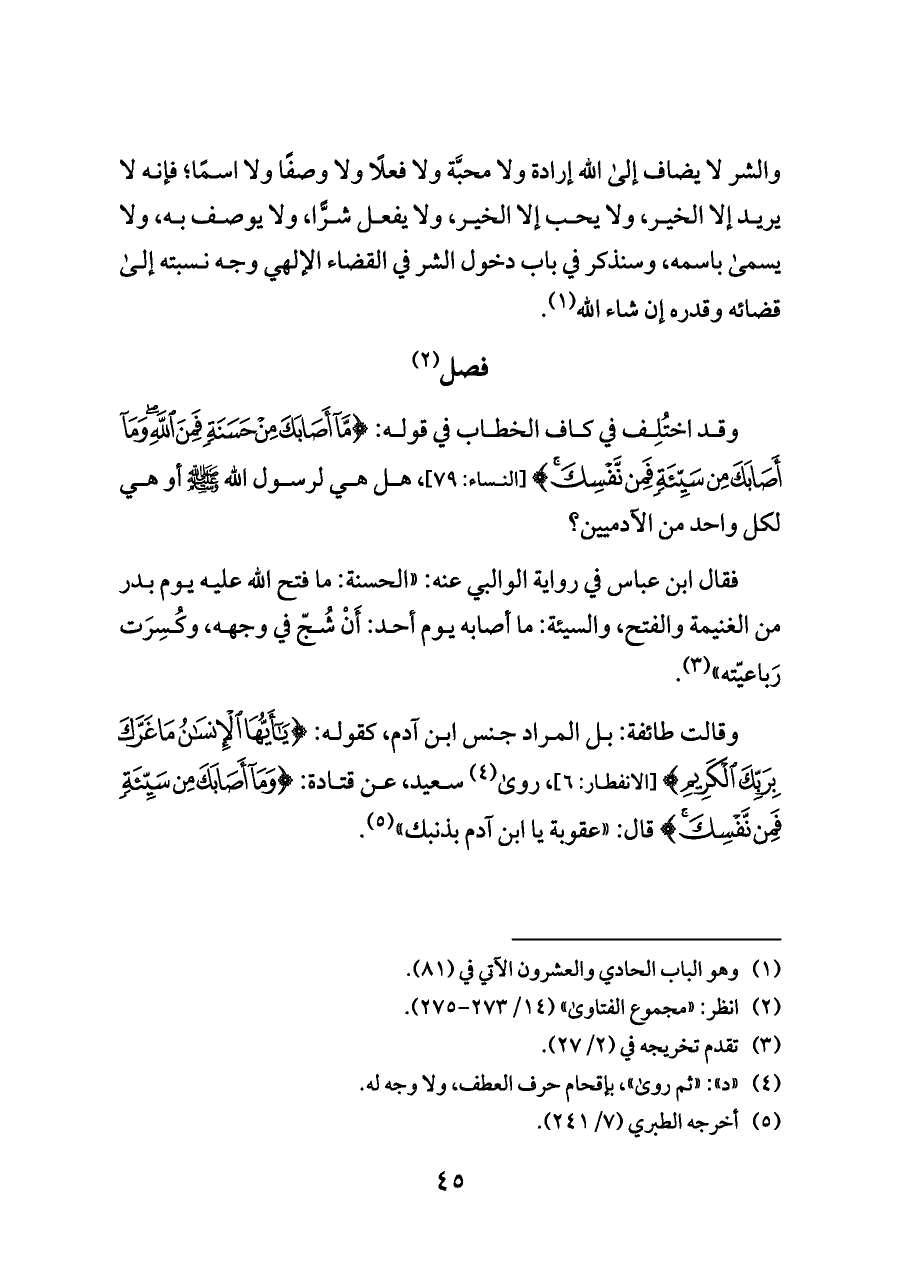 والشر لا يضاف إلىٰ الله إرادة ولا محبَّة ولا فعلًا ولا وصفًا ولا اسمًا؛ فإنه لا
يريد إلا الخير، ولا يحب إلا الخير، ولا يفعل شرًّا، ولا يوصف به، ولا
يسمىٰ باسمه، وسنذكر في باب دخول الشر في القضاء الإلهي وجه نسبته إلىٰ
قضائه وقدره إن شاء الله(١).
فصل(٢)
وقد اختُلِف في كاف الخطاب في قوله: ﴿مَّآ أَصَابَكَ مِنْ حَسَنَةٖ فَمِنَ ٱللَّهِۖ وَمَآ
أَصَابَكَ مِن سَيِّئَةٖ فَمِن نَّفۡسِكَۚ﴾ [النساء: ٧٩]، هل هي لرسول الله ﷺ أو هي
لكل واحد من الآدميين؟
فقال ابن عباس في رواية الوالبي عنه: «الحسنة: ما فتح الله عليه يوم بدر
من الغنيمة والفتح، والسيئة: ما أصابه يوم أحد: أَنْ شُجّ في وجهه، وكُسِرَت
رَباعيّته»(٣).
وقالت طائفة: بل المراد جنس ابن آدم، كقوله: ﴿يَٰٓأَيُّهَا ٱلۡإِنسَٰنُ مَا غَرَّكَ
بِرَبِّكَ ٱلۡكَرِيمِ﴾ [الانفطار: ٦]، روىٰ(٤) سعيد، عن قتادة: ﴿وَمَآ أَصَابَكَ مِن سَيِّئَةٖ
فَمِن نَّفۡسِكَۚ﴾ قال: «عقوبة يا ابن آدم بذنبك»(٥).
(١) وهو الباب الحادي والعشرون الآتي في (٨١).
(٢) انظر: «مجموع الفتاوىٰ» (١٤/ ٢٧٣-٢٧٥).
(٣) تقدم تخريجه في (٢/ ٢٧).
(٤) «د»: «ثم روىٰ»، بإقحام حرف العطف، ولا وجه له.
(٥) أخرجه الطبري (٧/ ٢٤١).
٤٥